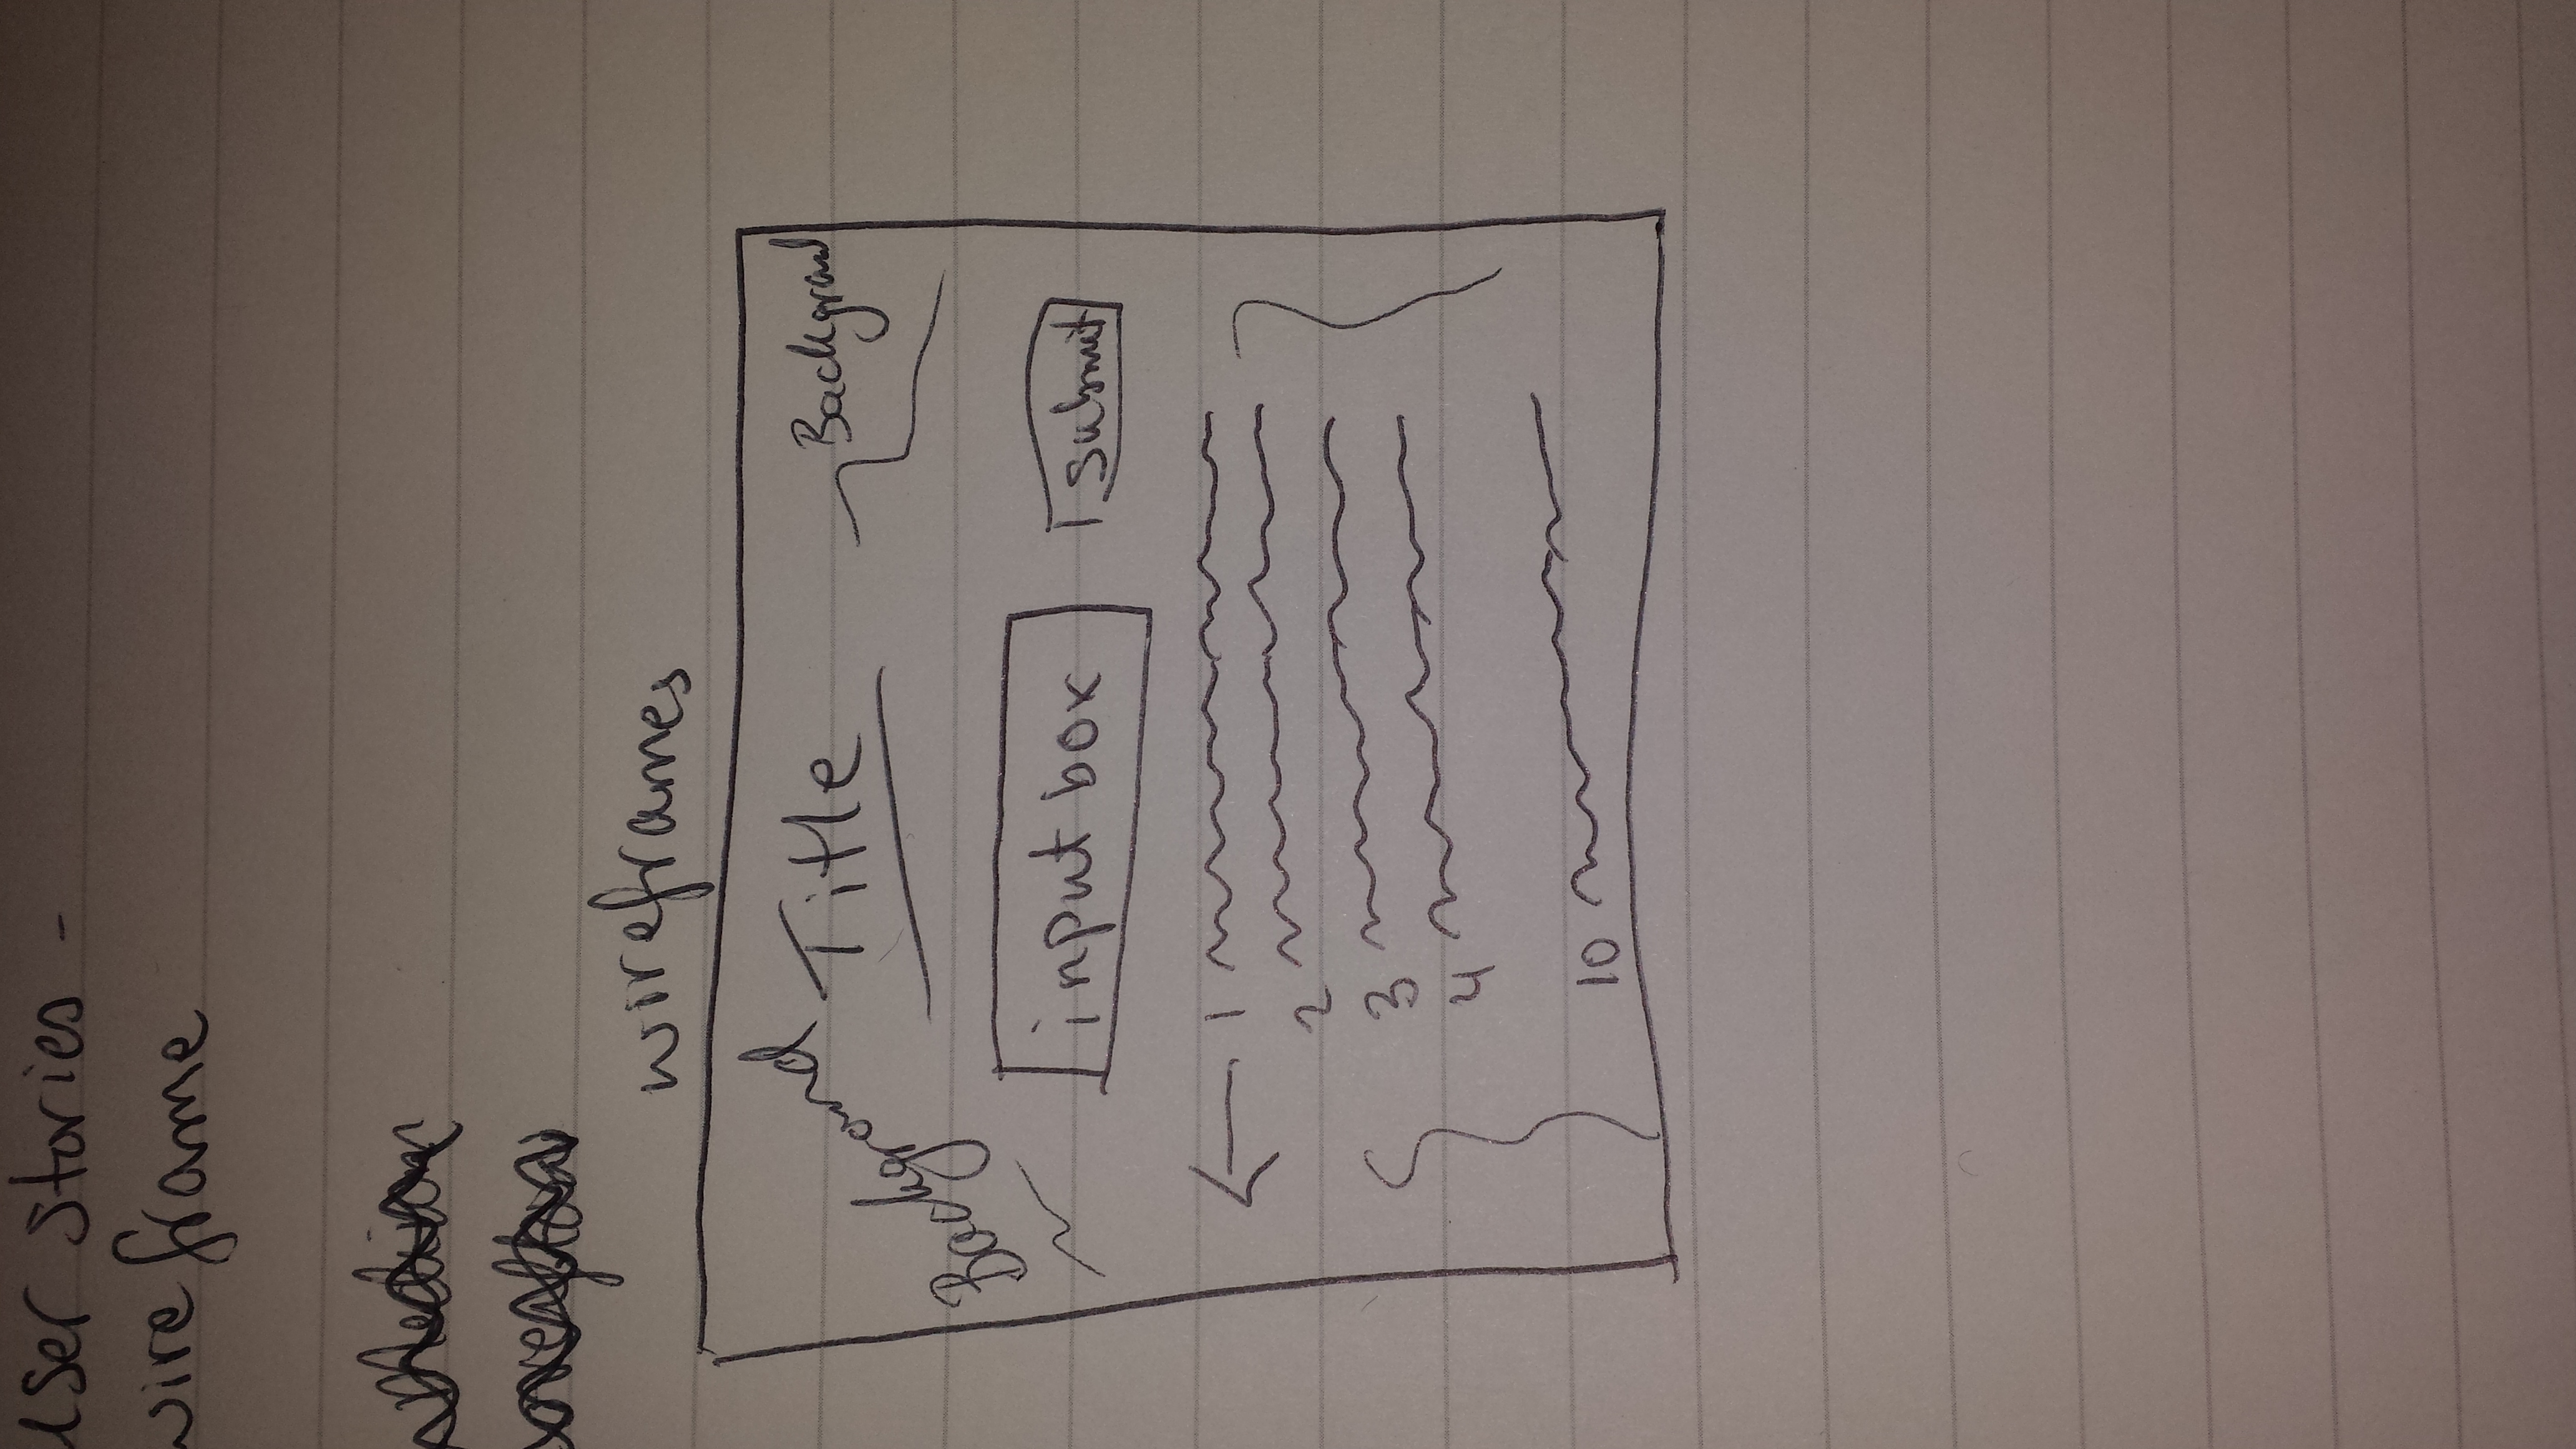 user stories -
wireframe
wireframes
Background
Title
Background
input box
submit
1
2
3
4
10